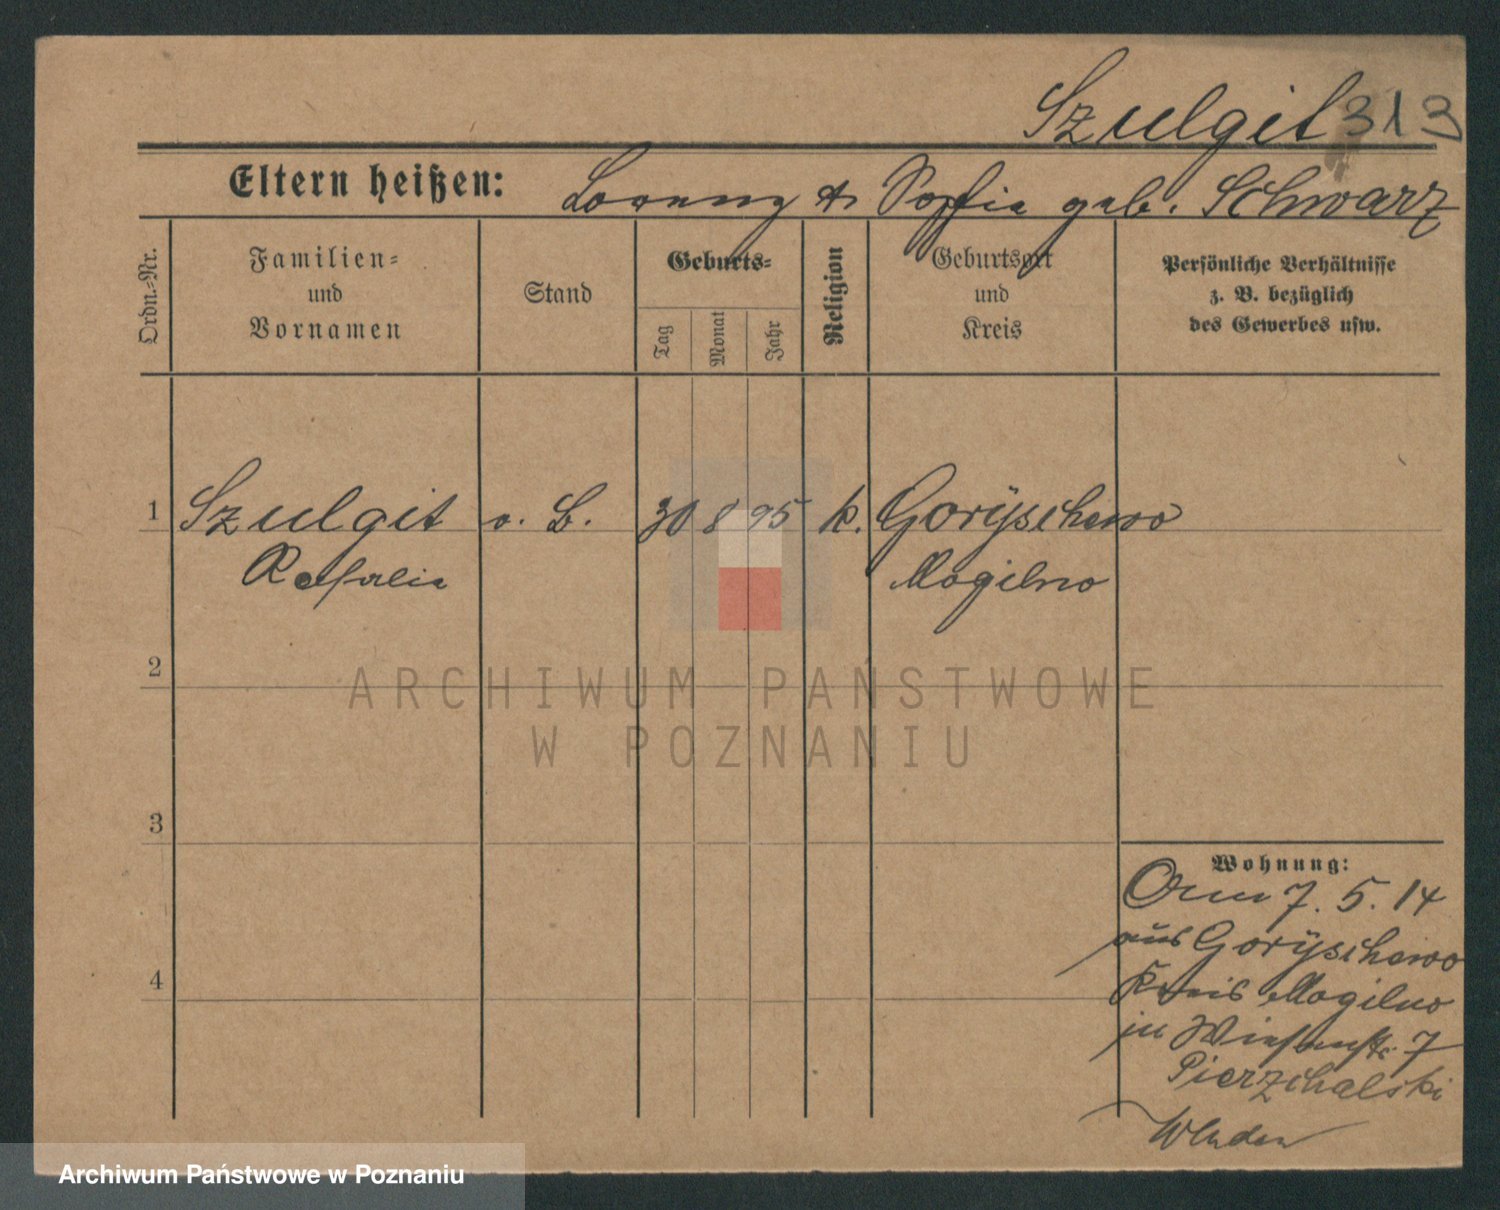 Szulgit 313
Eltern heißen: Lorenz & Sophie geb. Schwarz
Ordn.-Nr.
Familien- und Vornamen
Stand
Geburts-
Tag
Monat
Jahr
Religion
Geburtsort und Kreis
Persönliche Verhältnisse z. B. bezüglich des Gewerbes usw.
1 Szulgit o. B. 30 8 95 k. Goryschewo
Mogilno
2
ARCHIWUM PAŃSTWOWE
W POZNANIU
3
4
Wohnung:
7. 5. 14
aus Goryschewo
Kreis Mogilno
in Wiesenstr. 7
Pierzchalski
Archiwum Państwowe w Poznaniu